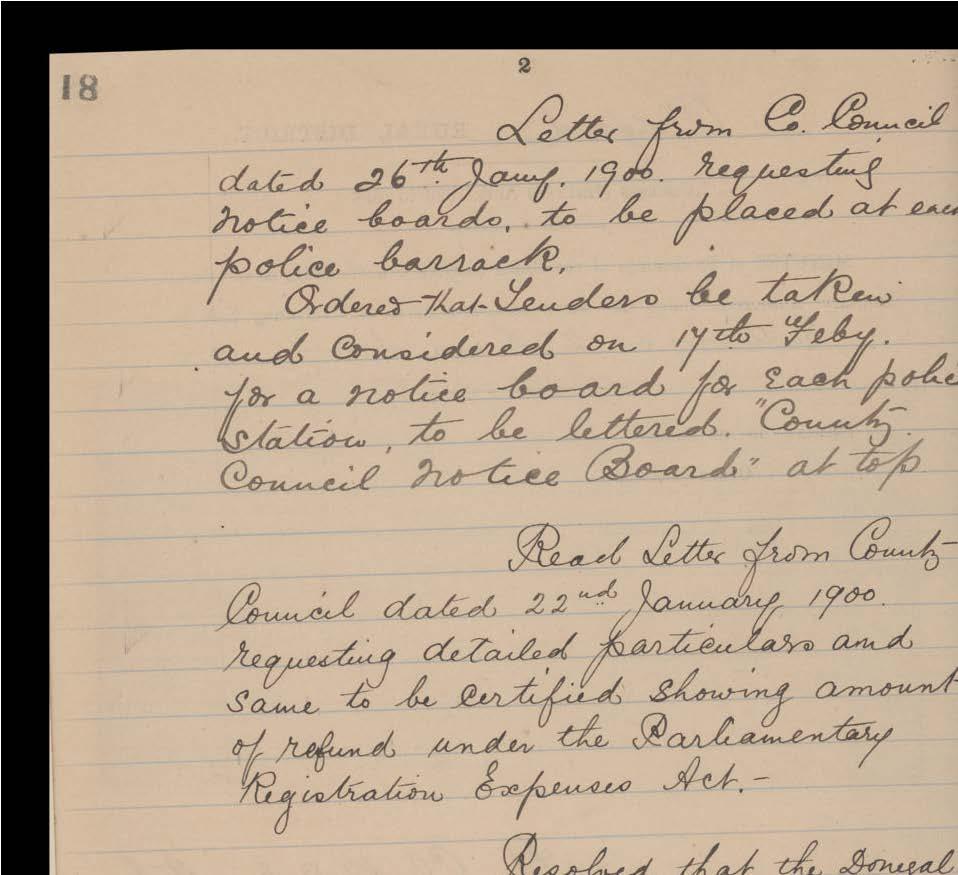 18
2
Letter from Co. Council
dated 26th Jany. 1900. requesting
notice boards, to be placed at each
police barrack.
Ordered that Tenders be taken
and considered on 17th Feby.
for a notice board for each police
station, to be lettered. "County
Council Notice Board" at top
Read Letter from County
Council dated 22nd January 1900.
requesting detailed particulars and
same to be certified showing amount
of refund under the Parliamentary
Registration Expenses Act.-
Resolved that the Donegal